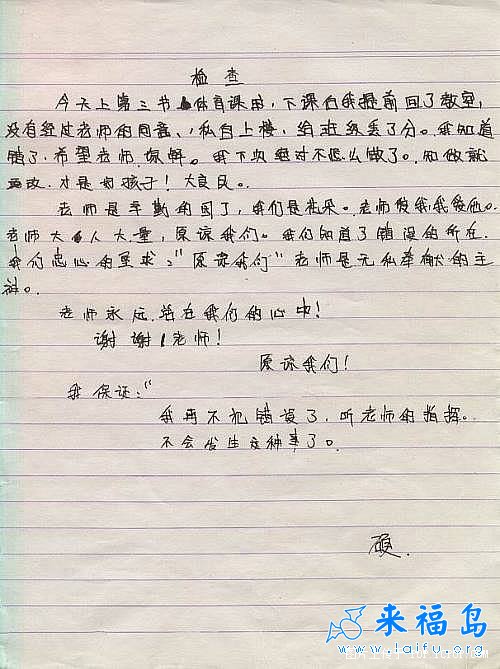 检查
今天上第三节体育课时,下课后我提前回了教室,
没有经过老师的同意、私自上楼,给班级丢了分。我知道
错了,希望老师原解。我下次绝对不怎么做了。知做就
改,才是好孩子!大良民。
老师是辛勤的园丁,我们是花朵。老师使我,我爱他。
老师大人大量,原谅我们。我们知道了错误的所在,
我们忠心的要求:“原谅我们”老师是无私奉献的主
老师永远活在我们的心中!
谢谢老师!
原谅我们!
我保证:“
我再不犯错误了,听老师的指挥。
不会发生这种事了。
来福岛
www.laifu.org